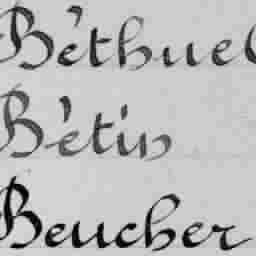 Béthuel
Bétin
Beucher